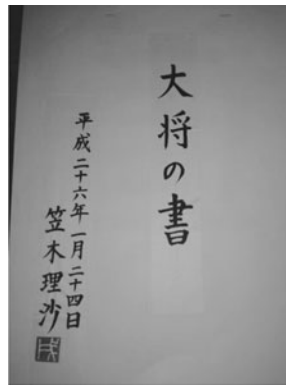 大将の書
平成二十六年一月二十四日
笠木理沙